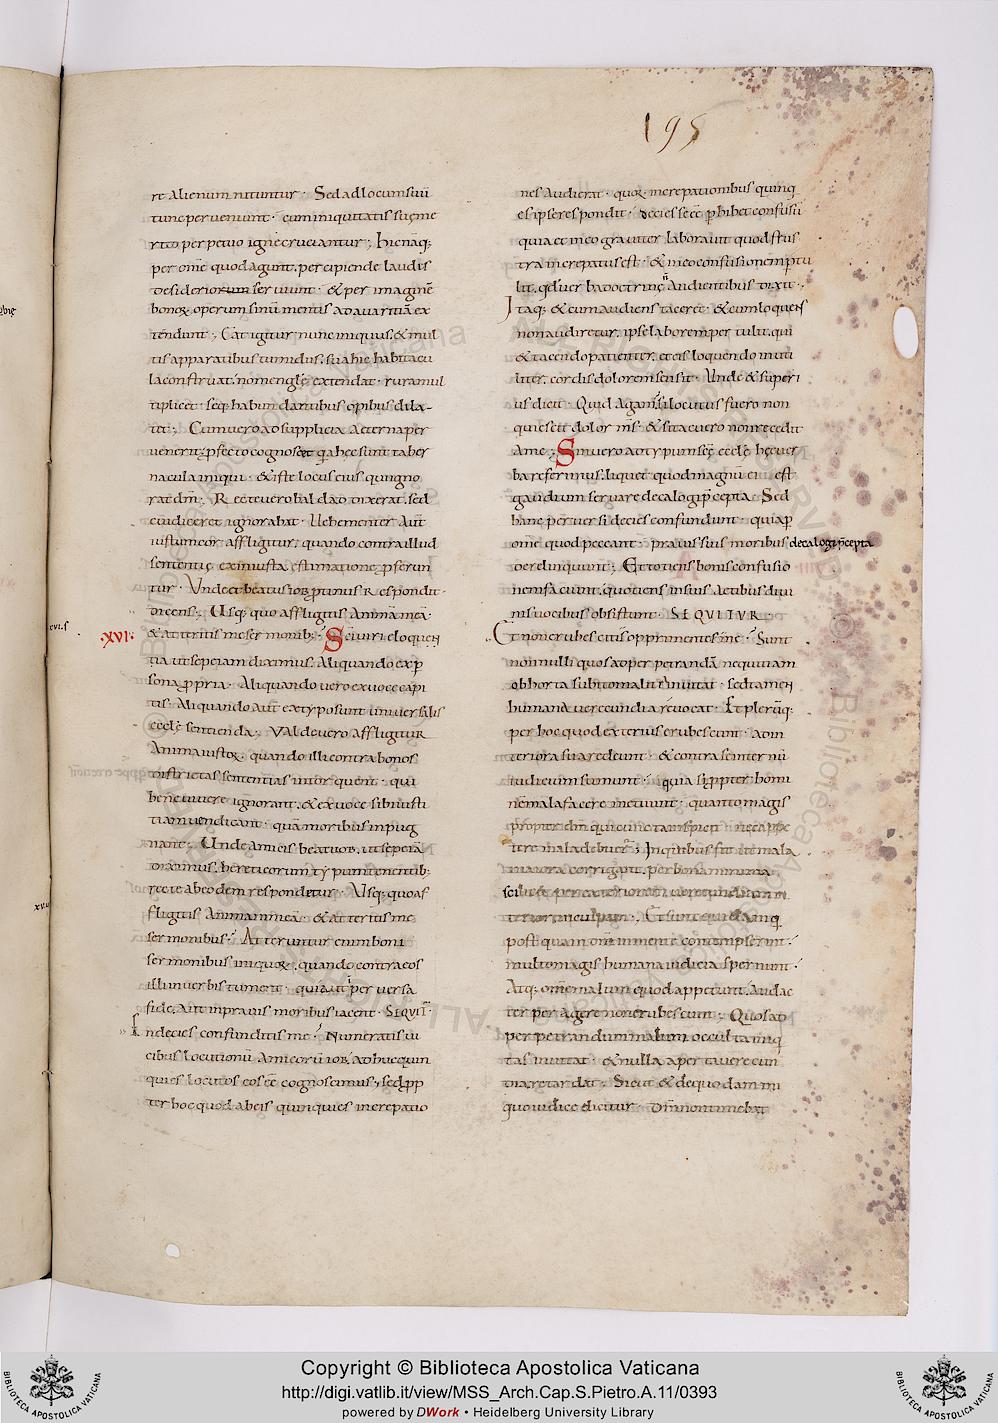 195
re alienum nituntur · Sed ad locum suū
tunc perveniunt · cum iniquitatis suę me
rito perpetuo igne cruciantur ; Hi enāq;
per om̄e quod agunt. percipiendę laudis
desideriorum serviunt · & per imaginē
bonoꝝ operum sinū mentis ad avaritiā ex
tendunt ; Eat igitur nunc iniquus. & mul
tis apparatibus tumidus. sua hic habitacu
la construat. nomen glę extendat · rura mul
tiplicet · seq; habundantibus opibus dila-
tet ; Cum vero ad supplicia aeterna per
venerit. ꝑfecto cognoscet
nacula iniqui · & iste locus eius qui igno
rat dm̄ · Recte vero baldad dixerat. sed
cui diceret ignorabat · Uehementer aut̄
iustum cor affligitur. quando contra illud
sententię ex iniusta ęstimatione ꝓferun
tur · Unde & beatus iob ꝓtinus respondit ·
dicens ; Usq; quo affligitis animā meā ·
XVI·
& atteritis me sermonib; ? Sciuri eloquen
tia ut sepe iam diximus. Aliquando ex ꝑ
sona ꝓpria · Aliquando vero ex voce capi
tis · Aliquando aut̄ ex typo sunt universalis
ecclę sentienda ; Valde vero affligitur
anima iustoꝝ · quando illi contra bonos
districtas sententias intorquent · qui
bene vivere ignorant. & ex voce sibi iusti
tiam vendicant · quā moribus inpug
nant ; Unde amicis beati iob. ut sepe iā
diximus. hereticorum typum tenentib;
recte ab eodem respondetur · Usq; quo af
fligitis animam meā · & atteritis me
sermonibus ? Atteruntur enim boni
sermonibus iniquoꝝ. quando contra eos
illi in verbis tument · quia
fide. aut in pravis moribus iacent · SEQUIT̄
En decies confunditis me ? Numeratis vi
cibus locutionū amicorū iob. adhuc quin
quies locutos eos eē cognoscimus ; sed ꝓp
ter hoc quod ab eis quinquies increpatio
nes audierat · quoꝝ increpationibus quinq
es ipse respondit · decies se eē ꝑhibet confusū
quia et in eo graviter laboravit quod frus
tra increpatus est · & in eo confusionem ꝑtu
lit.
Itaq; & cum audiens taceret · & cum loquens
non audiretur. ipse laborem pertulit. qui
& tacendo patienter. et eis loquendo inuti
liter. cordis dolorem sensit · Unde & superi
us dicit · Quid agam ? si locutus fuero non
quiescet dolor ms̄ · & si tacuero non recedit
a me ; Sin vero ad typum scę ecclę hęc ver
ba referimus. liquet quod magnū ei est
gaudium servare decalogi p̄cepta · Sed
hanc perversi decies confundunt · quia ꝑ
om̄e quod peccant · pravis suis moribus decalogi p̄cepta
derelinquunt ; Et totiens bonis confusio
nem faciunt. quotiens in suis actibus divi
nis vocibus obsistunt · SEQUITUR ·
Et non erubescitis opprimentes me ? Sunt
nonnulli quos ad perpetrandā nequitiam
obhorta subito malitia invitat · sed tamen
humana verecundia revocat · Et plerūq;
per hoc quod exterius erubescunt · ad in
teriora sua redeunt · & contra se inter nū
iudicium sumunt · quia si ꝓpter homi
nē mala facere metuunt · quanto magis
propter dm̄ qui cuncta inspicit nec appe
tere mala debuer̄ ; In quibus fit ut mala
maiora corrigant. per bona minima
scilic& per exteriorem verecundiam in
teriorem culpam ; Et sunt quidam q
postquam dm̄ in mente contempserint ·
multo magis humana iudicia spernunt ·
Atq; om̄e malum quod appetunt. audac
ter peragere non erubescunt ; Quos ad
perpetrandum malum. occulta iniq
tas invitat · & nulla aperta verecun
dia retardat ; Sicut & de quodam ini
quo iudice dicitur · Dm̄ non timebat